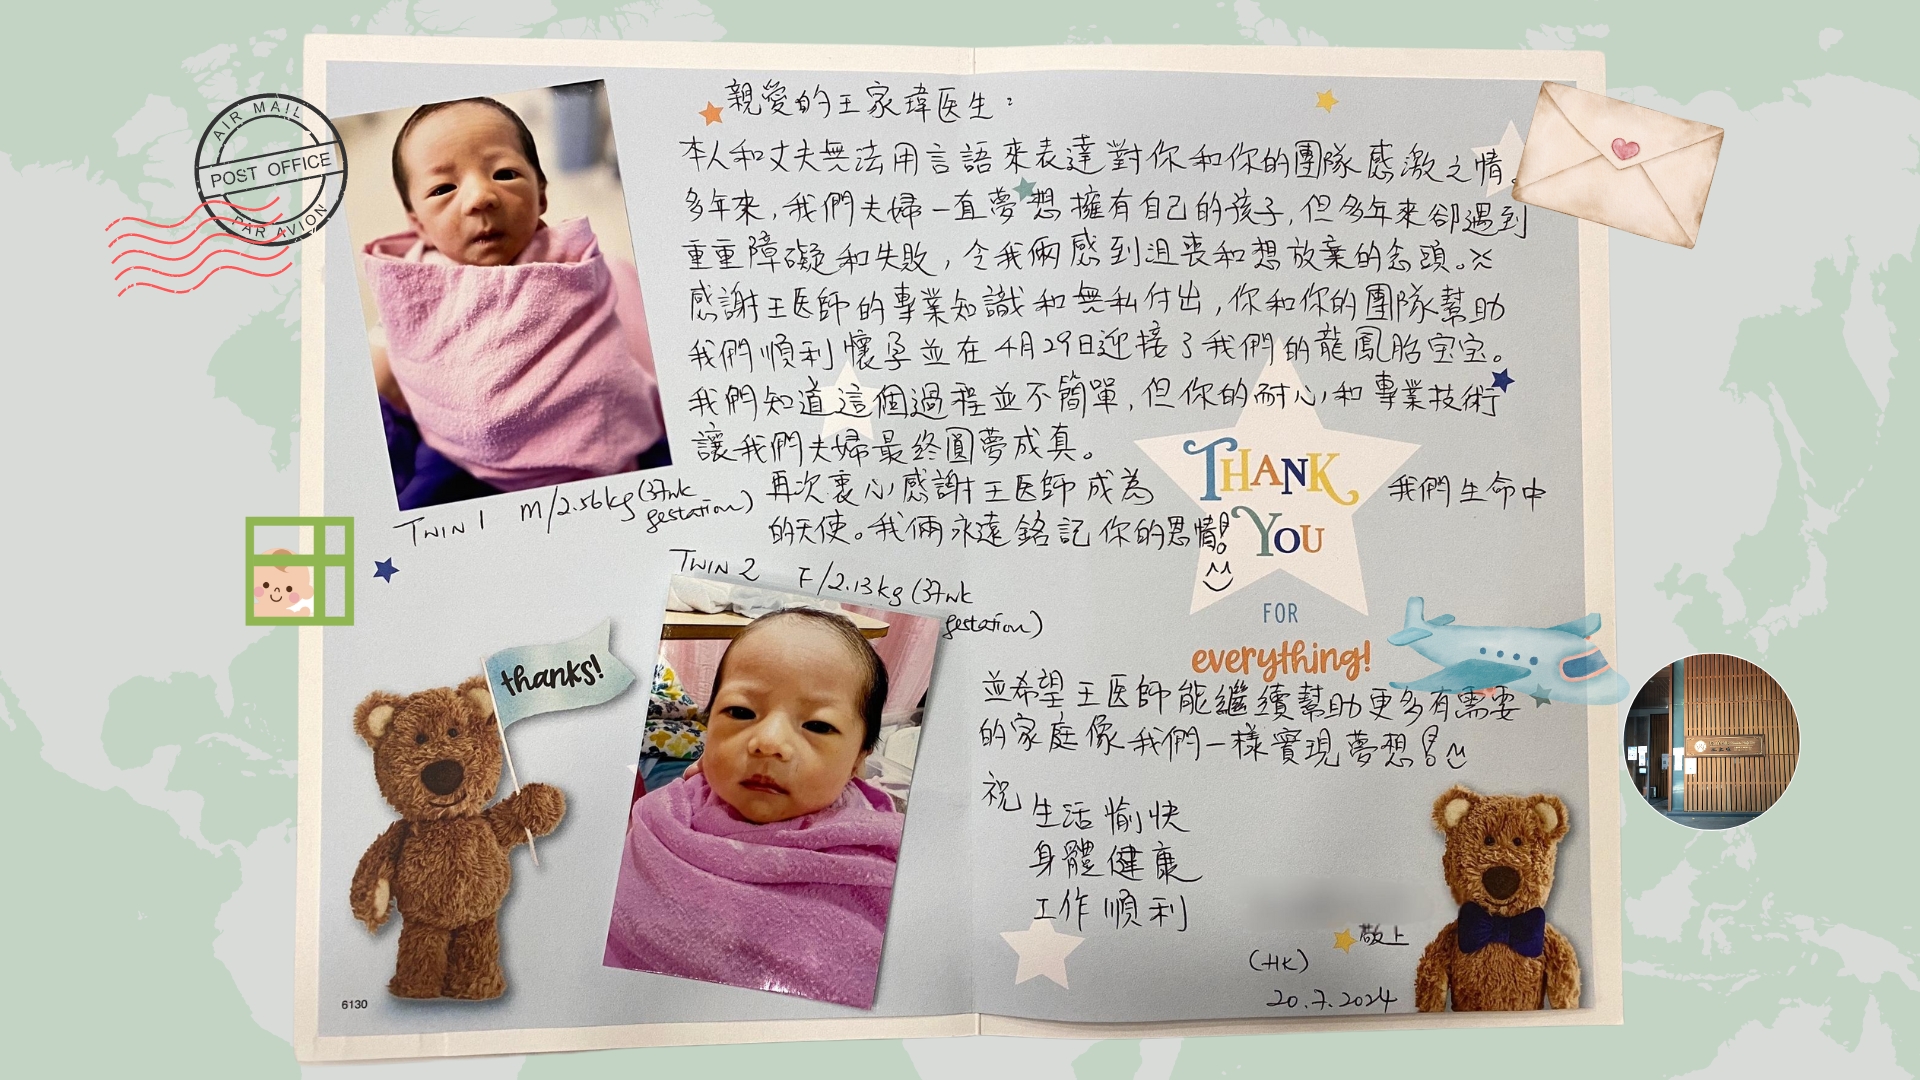 AIR MAIL
POST OFFICE
PAR AVION
親愛的王家瑋医生：
本人和丈夫無法用言語來表達對你和你的團隊感激之情。
多年來，我們夫婦一直夢想擁有自己的孩子，但多年來卻遇到
重重障礙和失敗，令我倆感到沮喪和想放棄的念頭。
感謝王医師的專業知識和無私付出，你和你的團隊幫助
我們順利懷孕並在4月29日迎接了我們的龍鳳胎宝宝。
我們知道這個過程並不簡單，但你的耐心和專業技術
讓我們夫婦最終圓夢成真。
再次衷心感謝王医師成為 我們生命中
的天使。我倆永遠銘記你的恩情!
TWIN 1 M/2.56kg (37wk
gestation)
TWIN 2 F/2.13kg (37wk
gestation)
THANK
YOU
FOR
everything!
thanks!
並希望王医師能繼續幫助更多有需要
的家庭像我們一樣實現夢想!
祝
生活愉快
身體健康
工作順利
敬上
(HK)
20.7.2024
6130